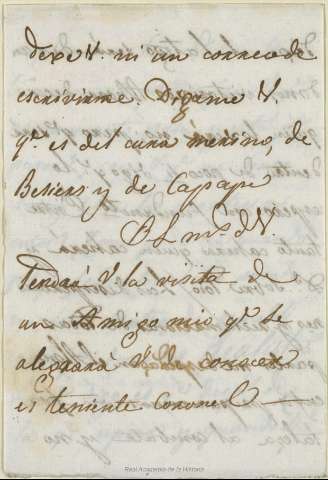 dexe V. ni un correo de
escrivirme. Digame V.
qe. es del cura merino, de
Besiers y de Capapé
B L ms. d V.
Tendrá V la visita de
un Amigo mio qe. se
alegrará V de conocer
es teniente coronel —
Real Academia de la Historia